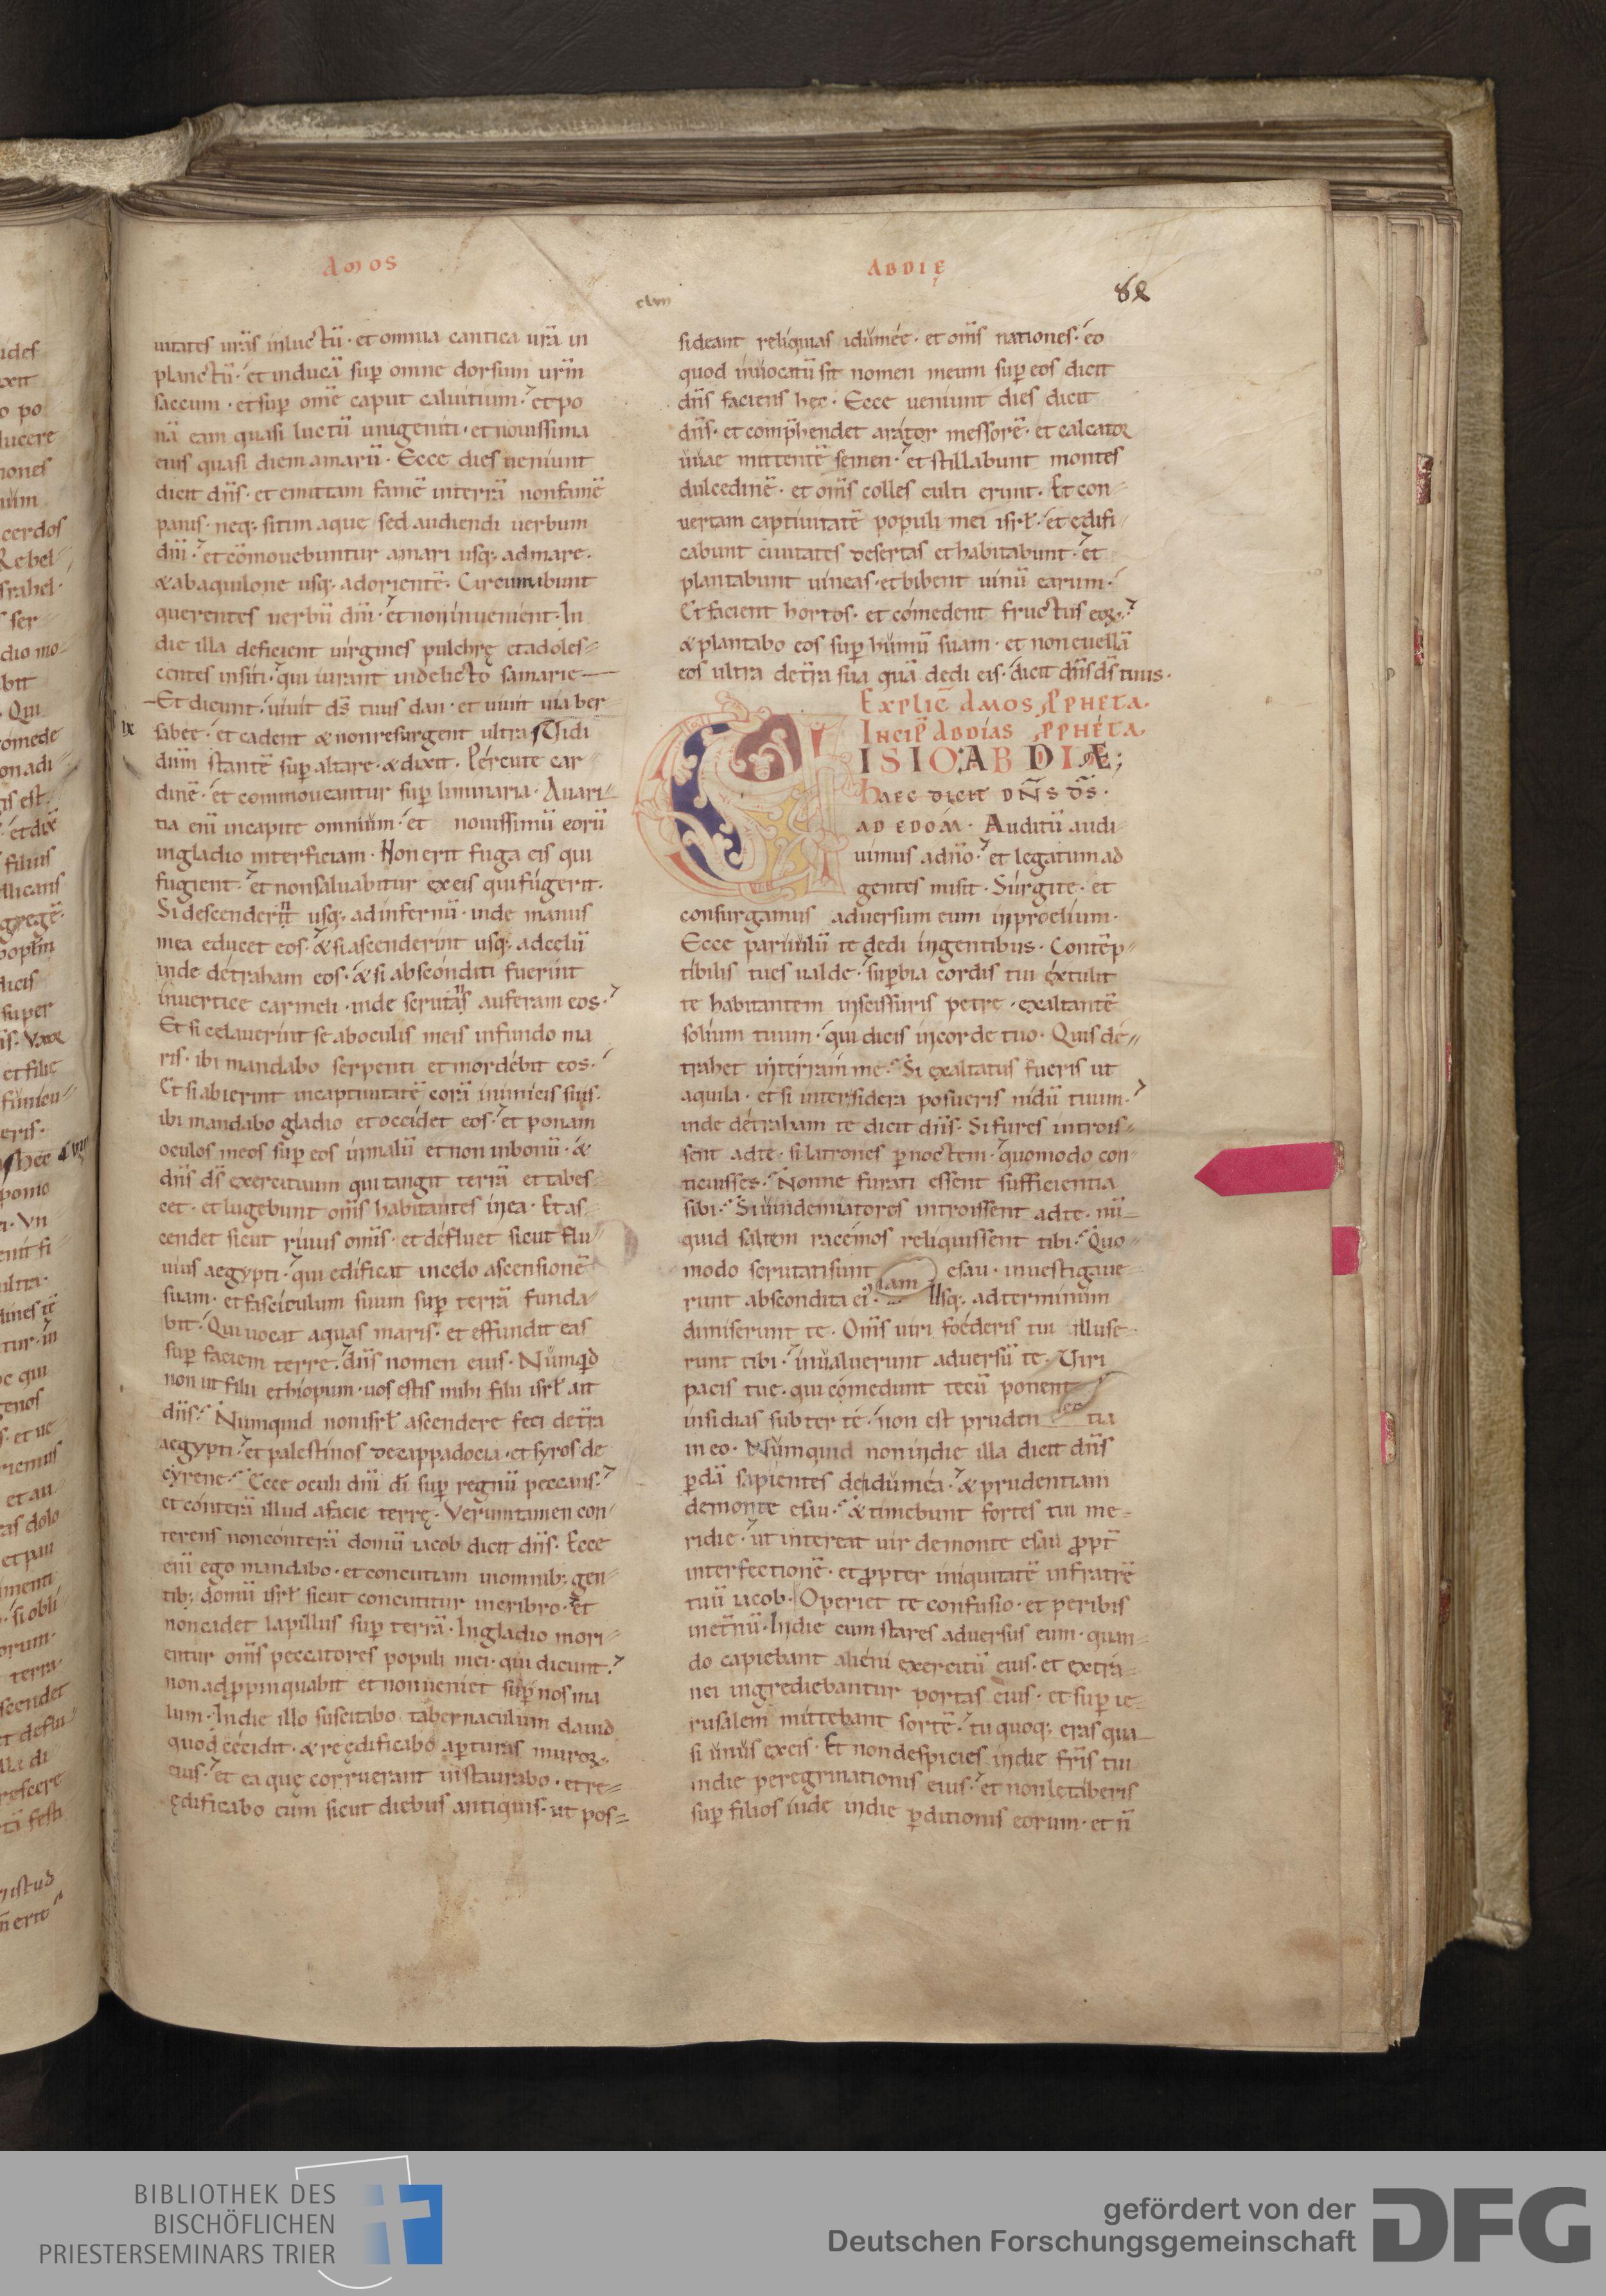 AMOS
uitates ur̄as inluctū · et omnia cantica ur̄a in
planctū · et inducā sup̄ omne dorsum ur̄m
saccum · et sup̄ omē caput caluitium · et po
nā eam quasi luctū unigeniti · et nouissima
eius quasi diem amarū · Ecce dies ueniunt
dicit dn̄s · et emittam famē interrā non famē
panis · neq; sitim aque sed audiendi uerbum
dn̄i · et cōmouebuntur amari usq; ad mare ·
& abaquilone usq; adorientē · Circumibunt
querentes uerbū dn̄i · et non inuenient · In
die illa deficient uirgines pulchrę et adoles
centes insiti · qui iurant indelicto samarie
Et dicunt · uiuit ds̄ tuus dan · et uiuit uia ber
ix sabee · et cadent & non resurgent ultra Uidi
dn̄m stantē sup̄ altare · & dixit · Percute car
dinē · et commoueantur sup̄ liminaria · Auari
tia enī incapite omnium · et nouissimū eorū
ingladio interficiam · Non erit fuga eis qui
fugient · et non saluabitur ex eis qui fugerit ·
Si descenderint usq; ad infernū · inde manus
mea educet eos · & si ascenderint usq; adcelū
inde detraham eos · & si absconditi fuerint
inuertice carmeli · inde scrutans auferam eos ·
Et si celauerint se aboculis meis infundo ma
ris · ibi mandabo serpenti et mordebit eos ·
Et si abierint incaptiuitatē corā inimicis suis ·
ibi mandabo gladio et occidet eos · et ponam
oculos meos sup̄ eos inmalū et non inbonū · &
dn̄s ds̄ exercituum qui tangit terrā et tabes
cet · et lugebunt om̄s habitantes inea · Et as
cendet sicut riuus om̄is · et defluet sicut flu
uius aegypti · qui edificat incelo ascensionē
suam · et fasciculum suum sup̄ terrā funda
bit · Qui uocat aquas maris · et effundit eas
sup̄ faciem terre · dn̄s nomen eius · Nūmqd
non ut filii ethiopum · uos estis mihi filii isrł ait
dn̄s · Numquid non isrł ascendere feci detr̄a
aegypti · et palestinos decappadocia · et syros de
cyrene · Ecce oculi dn̄i di sup̄ regnū peccans ·
et conterā illud afacie terrę · Verumtamen con
terens non conterā domū iacob dicit dn̄s · Ecce
enī ego mandabo · et concutiam inomnib; gen
tib; domū isrł sicut concutitur incribro · et
non cadet lapillus sup̄ terrā · Ingladio mori
entur om̄s peccatores populi mei · qui dicunt ·
non adp̄pinquabit et non ueniet sup̄ nos ma
lum · Indie illo suscitabo tabernaculum dauid
quod cecidit · & reędificabo ap̄turas muroꝝ
eius · et ea quę corruerant instaurabo · et re
ędificabo eum sicut diebus antiquis · ut pos
ABDIĘ
sideant reliquias idumee · et om̄s nationes · eo
quod inuocatū sit nomen meum sup̄ eos dicit
dn̄s faciens hec · Ecce ueniunt dies dicit
dn̄s · et comp̄hendet arator messorē · et calcator
uuae mittentē semen · et stillabunt montes
dulcedinē · et om̄s colles culti erunt · Et con
uertam captiuitatē populi mei isrł · et ędifi
cabunt ciuitates desertas et habitabunt · et
plantabunt uineas · et bibent uinū earum ·
Et facient hortos · et comedent fructus eoꝝ ·
& plantabo eos sup̄ humū suam · et non euellā
eos ultra detr̄a sua quā dedi eis · dicit dn̄s ds̄ tuus ·
Explic̄ AMOS PPHETA.
Incip̄ Abdias PPHETA.
VISIO ABDIÆ;
Haec dicit DN̄S DS̄ ·
AD EDOM · Auditū audi
uimus adn̄o · et legatum ad
gentes misit · Surgite · et
consurgamus aduersum eum inproelium ·
Ecce paruulū te dedi ingentibus · Contēp
tibilis tu es ualde · sup̄bia cordis tui extulit
te habitantem inscissuris petre · exaltantē
solium tuum · qui dicis incorde tuo · Quis de
trahet interram me · Si exaltatus fueris ut
aquila · et si inter sidera posueris nidū tuum ·
inde detraham te dicit dn̄s · Si fures introis
sent adte · si latrones p̄ noctem · quomodo con
ticuisses · Nonne furati essent sufficientia
sibi · Si uindemiatores introissent adte · nū
quid saltem racemos reliquissent tibi · Quo
modo scrutati sunt esau · inuestigaue
runt abscondita ei · Usq; ad terminum
dimiserunt te · Om̄s uiri foederis tui illuse
runt tibi · inualuerunt aduersū te · Uiri
pacis tue · qui comedunt tecū ponent
insidias subter te · non est pruden tia
in eo · Numquid non indie illa dicit dn̄s
p̄dā sapientes deidumea · & prudentiam
demonte esau · & timebunt fortes tui me
ridie · ut intereat uir demonte esau p̄pt̄
interfectionē · et p̄pter iniquitatē infratrē
tuū iacob · Operiet te confusio · et peribis
inet̄nū · Indie cum stares aduersus eum · quan
do capiebant alieni exercitū eius · et extra
nei ingrediebantur portas eius · et sup̄ ie
rusalem mittebant sortē · tu quoq; eras qua
si unus exeis · Et non despicies indie fr̄is tui
indie peregrinationis eius · et non letaberis
sup̄ filios iude indie p̄ditionis eorum · et n̄
BIBLIOTHEK DES
BISCHÖFLICHEN
PRIESTERSEMINARS TRIER
gefördert von der
Deutschen Forschungsgemeinschaft
DFG